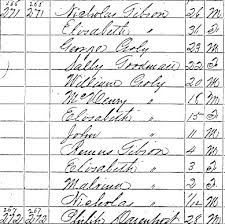 266 265
271 271 Nicholas Gibson 26 M
Elisabeth " 31 F
George Croly 24 M
Sally Goodman 22 F
William Croly 20 M
McHenry " 18 M
Elisabeth " 15 F
John " 11 M
Gibson 4 M
Elisabeth " 3 F
Malvina " 2 F
Nicholas " 1/12 M
272 272 Davenport 28 M